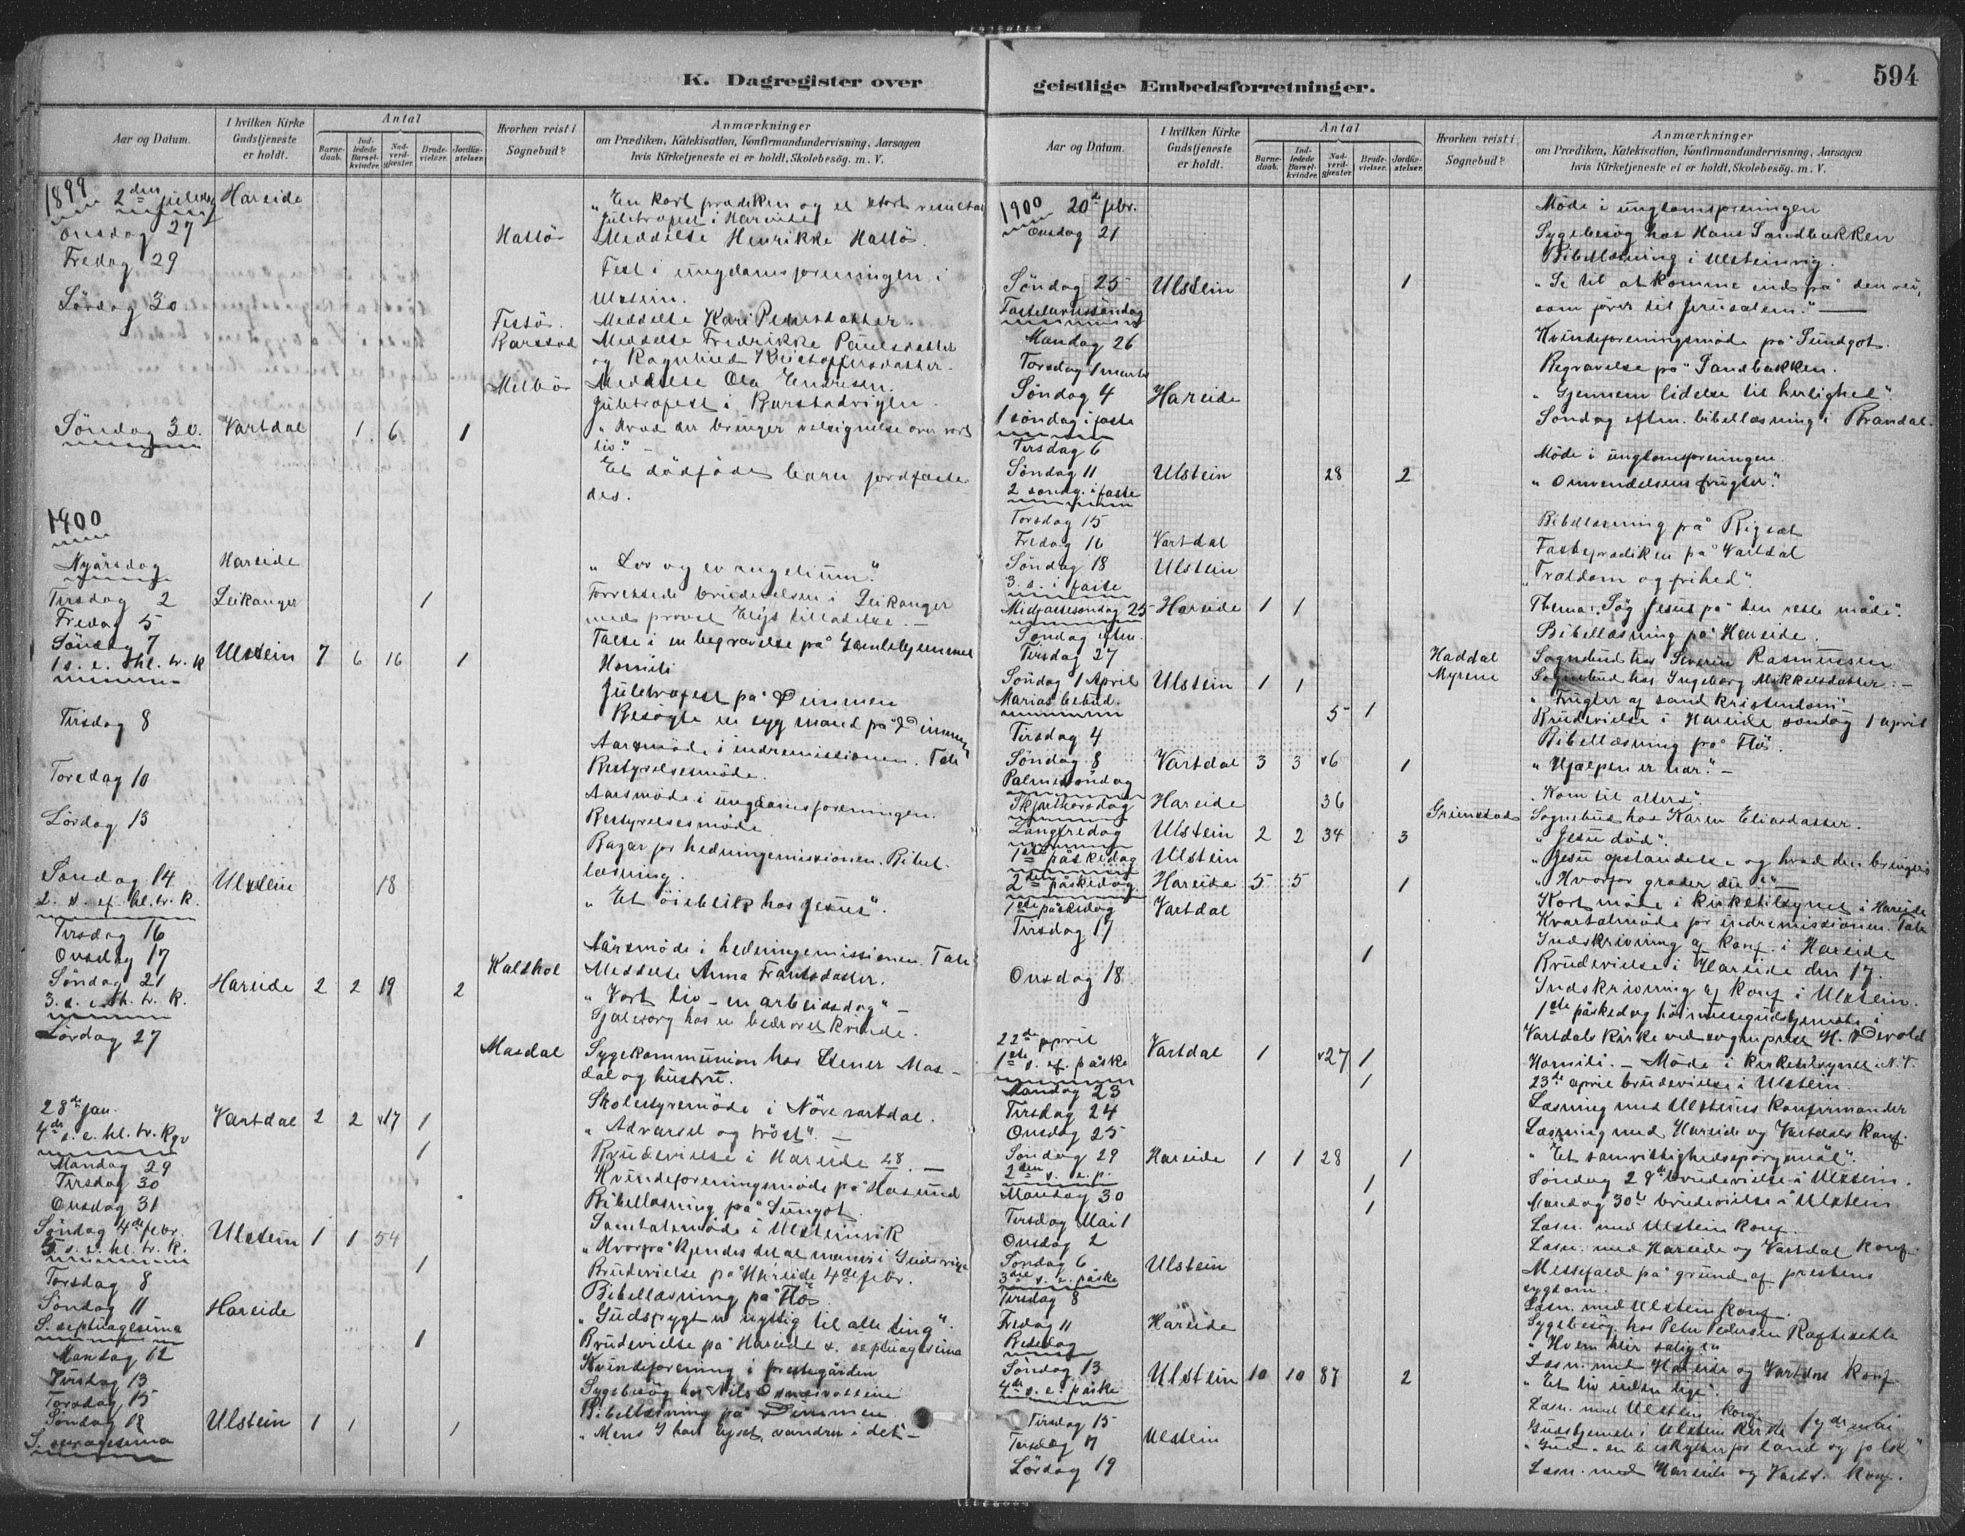 K. Dagregister over
geistlige Embedsforretninger.
594
Aar og Datum.
I hvilken Kirke Gudstjeneste er holdt.
Antal
Barnedaab.
Indledede Barselkvinder.
Nadverdgjester.
Brudevielser.
Jordkastelser.
Hvorhen reist i Sognebud?
Anmærkninger
om Prædiken, Katekisation, Konfirmandundervisning, Aarsagen
hvis Kirketjeneste ei er holdt, Skolebesøg. m. V.
1899 2den juledag Hareide
"En kort prædiken og et stort resultat
Juletræfest i Hareide
Onsdag 27 Hallö Meddelse Henrikke Hallö.
Fredag 29 Fest i ungdomsforeningen i
Ulstein.
Lørdag 30 Festö. Meddelse Kari
Karstad Meddelse Fredrikke Paulsdatter
og Ragnhild
Melbö Meddelse Ola Endresen.
Juletræfest i Barstadvigen.
Søndag 30. Vartdal 1 6 1 "Hvad der bringer velsignelse over vort
liv."
Et dödfödt barn jordfæstedes.
1900
Nyårsdag Hareide "Lov og evangelium."
Tirsdag 2 Leikanger 1 Forrettede brudevielsen i Leikanger
med provst tilladelse. —
Fredag 5 Talte i en begravelse på Gamlehjemmet
Søndag 7 Ulstein 7 6 16 1 Homili
1 s. e. Hel. tr. K
Juletræfest på Dimmen
Tirsdag 8 Besøgte en syg mand på Dimmen
Aarsmöde i indremissionen. Tale
Torsdag 10 Bestyrelsesmöde.
Aarsmöde i ungdomsforeningen.
Lørdag 13 Bestyrelsesmöde.
Bazar for hedningemissionen. Bibellæsning.
Søndag 14 Ulstein 18 "Et öieblik hos Jesus".
2. s. ef. hl. tr. K.
Tirsdag 16 Aårsmöde i hedningemissionen. Tale
Onsdag 17 Kaldhol Meddelse Anna Frantsdatter.
Søndag 21 Hareide 2 2 19 2 "Vort liv - en arbeidsdag" —
3. s. e. h. tr. K. Sjælesorg hos en bedrøvet kvinde.
Lördag 27 Masdal Sygekommunion hos Stener Mas-
dal og hustru.
Skolestyremöde i Nöre vartdal.
28de jan. Vartdal 2 2 17 1 "Advarsel og tröst". —
4de s. e. hl. tr. Kgr
1 Brudevielse i Hareide 28. —
Mandag 29 Kvindeforeningsmöde på Hasund
Tirsdag 30 Bibellæsning på Sungot.
Onsdag 31 Samtalemöde i Ulsteinvik
Søndag 4de febr. Ulstein 1 1 54 "Hvorpå kjendes det at man er i Guds rige
5. s. e. hl. tr. K. 1 Brudevielse på Hareide 4de febr.
Torsdag 8 Bibellæsning på Flö
Søndag 11 Hareide "Gudsfrygt er nyttig til alle ting".
S. septuagesima 1 Brudevielse på Hareide s. septuagesima
Mandag 12 Kvindeforening i prestegården
Tirsdag 13 Sygebesög hos Nils
Torsdag 15 Bibellæsning på Dimmen
Søndag 18 Ulstein 1 1 1 "Mens I har lyset, vandre i det" —
S. sexagesima
Aar og Datum.
I hvilken Kirke Gudstjeneste er holdt.
Antal
Barnedaab.
Indledede Barselkvinder.
Nadverdgjester.
Brudevielser.
Jordkastelser.
Hvorhen reist i Sognebud?
Anmærkninger
om Prædiken, Katekisation, Konfirmandundervisning, Aarsagen
hvis Kirketjeneste ei er holdt, Skolebesøg. m. V.
1900 20de febr. Möde i ungdomsforeningen
Onsdag 21 Sygebesög hos Hans Sandbakken
Bibellæsning i Ulsteinvig.
Søndag 25 Ulstein 1 "Se til at komme ind på den vei,
Fastelavnssöndag som förer til Jerusalem." —
Mandag 26 Kvindeforeningsmöde på Sundgot.
Torsdag 1 marts Begravelse på Sandbakken.
Søndag 4 Hareide "Gjennem lidelse til herlighed".
1 söndag i faste Søndag eftm. bibellæsning i Brandal.
Tirsdag 6 Möde i ungdomsforeningen.
Søndag 11 Ulstein 28 2 "Omvendelsens frugter".
2 søndg. i faste
Torsdag 15 Bibellæsning på Rigset
Fredag 16 Vartdal Fasteprædiken på Vartdal
Søndag 18 Ulstein "Trældom og frihed"
3. s. i faste
Midfastesøndag 25 Hareide 1 1 Thema: "Søg Jesus på den rette måde".
Søndag eftm. Bibellæsning på Hareide.
Tirsdag 27 Haddal Sognebud hos Severin Rasmussen
Søndag 1 April Ulstein 1 1 Myrene Sognebud hos Ingeborg Mikkelsdatter. —
Marias bebud. "Frugter af sand kristendom" —
5 1 Brudevielse i Hareide söndag 1 april
Tirsdag 4 Bibellæsning på Flö.
Søndag 8 Vartdal 3 3 6 1 "Hjælpen er nær". —
Palmesöndag
Skjærtorsdag Hareide 36 "Kom til alters".
Grimstad Sognebud hos Karen Eliasdatter.
Langfredag Ulstein 2 2 34 3 "Jesu död".
1ste påskedag Ulstein "Jesu opstandelse og hvad den bringer"
2den påskedag Hareide 5 5 1 "Hvorfor græder du?" —
1ste påskedag Vartdal Kort möde i kirketilsynet i Hareide
Tirsdag 17 Kvartalmöde for indremissionen. Tale
Indskrivning af konf. i Hareide
1 Brudevielse i Hareide den 17.
Onsdag 18. Indskrivning af konf i Ulstein.
1ste påskedag höimessegudstjeneste i
Vartdals kirke ved sogneprest H. Devold
22de april Vartdal 1 27 1 Homili. — Möde i kirketilsynet. N. T.
1ste s. ef. påske
1 23de april brudevielse i Ulstein.
Mandag 23 Læsning med Ulsteins konfirmander
Tirsdag 24
Onsdag 25 Læsning med Hareide og Vartdals konf.
Søndag 29 Hareide 1 1 28 1 "Et samvittighedspörgsmål".
2den s. e. p. 1 Söndag 29de brudevielse i Ulstein.
Mandag 30 1 Mandag 30te brudevielse i Ulstein
Tirsdag Mai 1 Læsn. med Ulstein konf.
Onsdag 2 Læsn. med Hareide og Vartdal konf
Søndag 6 Ulstein Messefald på grund af prestens
3die s. e. påske sygdom.
Tirsdag 8 Læsn. med Ulstein konf.
Fredag 11 Hareide Sygebesög hos Peter Pedersen Raftesetle
Bededag "Hvem blir salige"
Søndag 13 Ulstein 10 10 87 2 Læsn. med Hareide og Vartdal konf
4de s. e. påske "Et liv uden lige".
Tirsdag 15 Læsn. med Ulstein konf.
Torsdag 17 Ulstein Gudstjeneste i Ulstein kirke 17de mai
"Gud en beskytter for land og folk"
Lördag 19 Læsn. med Hareide og Vartd. konf.